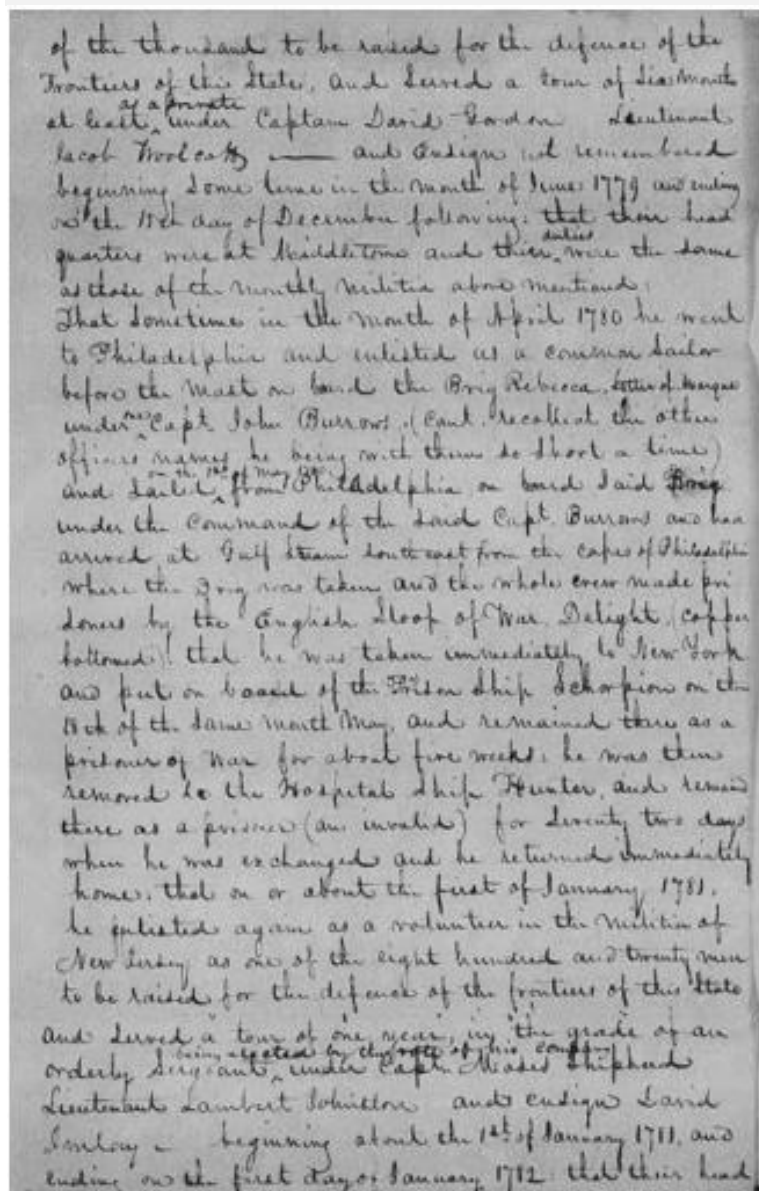 of the thousand to be raised for the defence of the
Frontiers of this State, and Served a tour of Six Month
at least as a private under Captain David Gordon Lieutenant
Jacob Woolcott —— and Ensign not remembered
beginning Some time in the month of June 1779 and ending
on the 18th day of December following: that their head
quarters were at Middletown and their duties were the same
as those of the monthly militia above mentioned:
That Sometime in the month of April 1780 he went
to Philadelphia and enlisted as a common Sailor
before the Mast on board the Brig Rebecca, Letter of Marque
under one Capt John Burrows, (cant recollect the other
officers names he being with them so short a time)
and Sailed on the 1st of May from Philadelphia on board Said Brig
under the Command of the Said Capt. Burrows and had
arrived at Gulf Stream South east from the capes of Philadelphi
where the Brig was taken and the whole crew made pri
soners by the English Sloop of War, Delight, (copper
bottomed): that he was taken immediately to New York
and put on board of the Prison Ship Schorpion on the
18th of the Same month May, and remained there as a
prisoner of War for about five weeks: he was then
removed to the Hospital Ship Hunter, and remain
there as a prisoner (an invalid) for Seventy two days
when he was exchanged and he returned immediately
home: that on or about the first of January 1781,
he enlisted again as a volunteer in the militia of
New Jersey as one of the eight hundred and twenty men
to be raised for the defence of the frontiers of this State
and Served a tour of one year, in the grade of an
orderly Sergeant being elected by the vote of his company under Capt. Moses Shepherd
Lieutenant Lambert Johnston and ensign David
Imlay – beginning about the 1st of January 1781, and
ending on the first day of January 1782: that their head